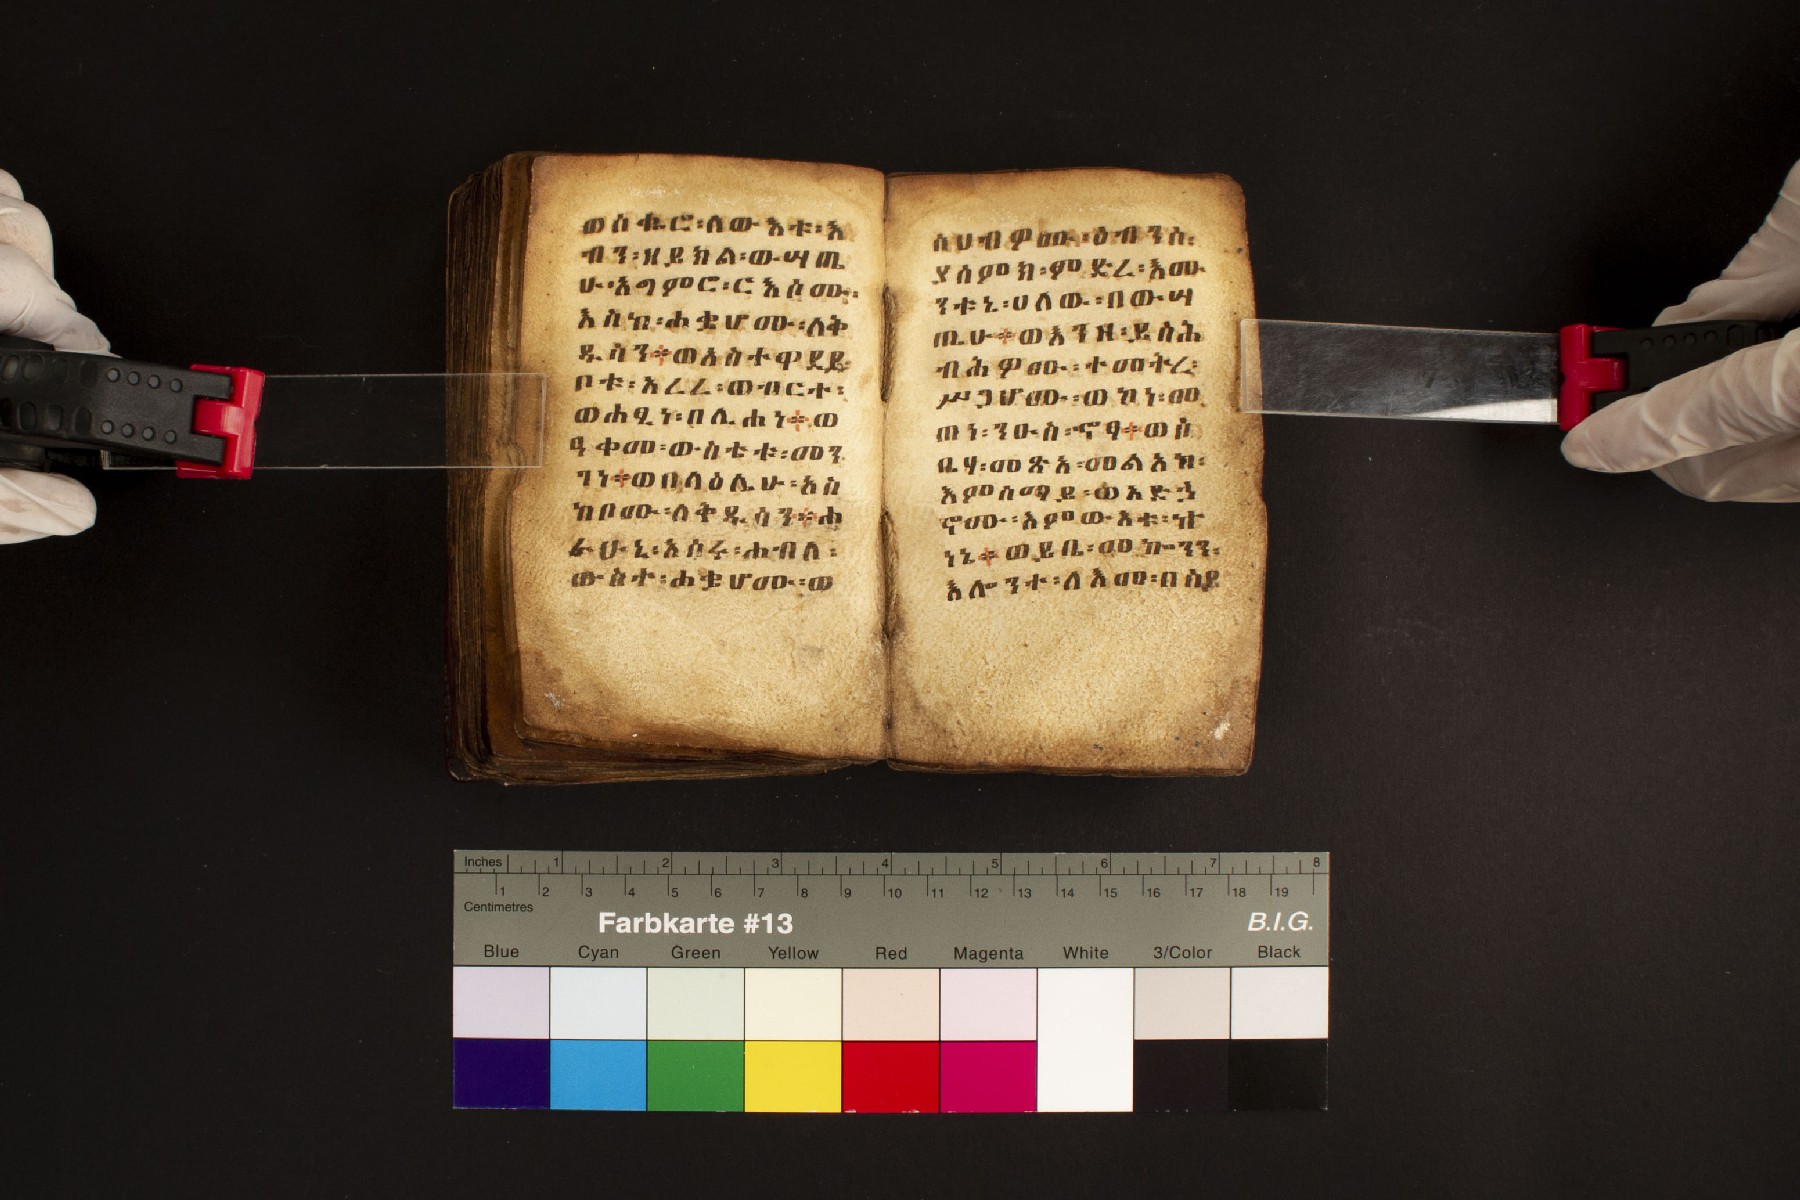 ወሰቈሮ፡ለውእቱ፡እ
ብን፡ዘይክል፡ውሣጤ
ሁ፡አግምሮ፡ርእሰሙ፡
እስከ፡ሐቌሆሙ፡ለቅ
ዱሳን፨ወአስተዋደደ፡
ቦቱ፡አረረ፡ወብርተ፡
ወሐፂነ፡በሊሐነ፨ወ
ዓቀመ፡ውስቴቱ፡መን
ገነ፨ወበላዕሌሁ፡አስ
ከቦሙ፡ለቅዱሳን፨ሐ
ራሁኒ፡አሰሩ፡ሐብለ፡
ውስተ፡ሐቌሆሙ፡ወ
ሰሀብዎሙ፡ዕብንሰ፡
ያሰምክ፡ምድረ፡እሙ
ንቱኒ፡ሀለው፡በውሣ
ጤሁ፨ወእንዘ፡ይስሕ
ብሕዎሙ፡ተመትረ፡
ሥጋሆሙ፡ወኮነ፡መ
ጠነ፡ንዑስ፡ኖፃ፨ወሶ
ቤሃ፡መጽአ፡መልአክ፡
እምሰማይ፡ወአድኃ
ኖሙ፡እምውእቱ፡ኵ
ነኔ፨ወይቤ፡መኰንን፡
እሎንተ፡ለእመ፡በሰይ
Inches 1 2 3 4 5 6 7 8
1 2 3 4 5 6 7 8 9 10 11 12 13 14 15 16 17 18 19
Centimetres
Farbkarte #13 B.I.G.
Blue Cyan Green Yellow Red Magenta White 3/Color Black